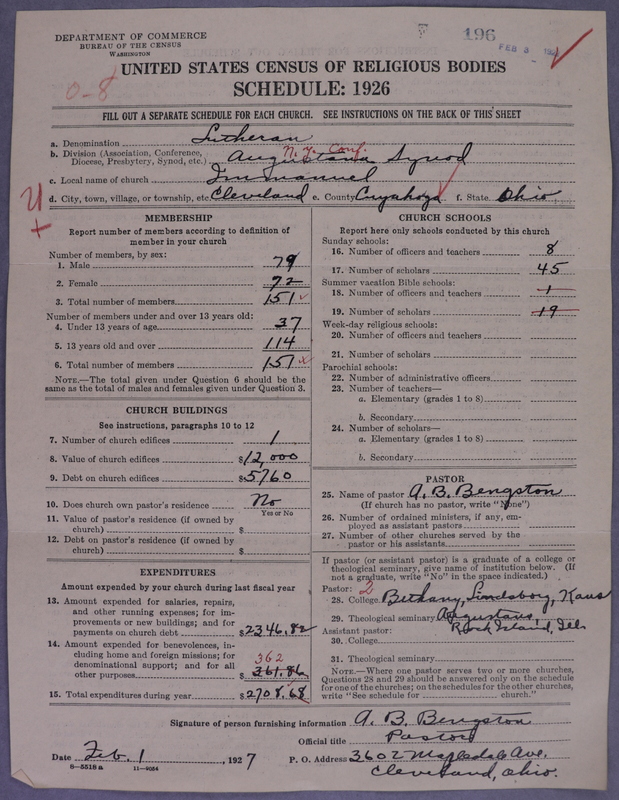 DEPARTMENT OF COMMERCE
BUREAU OF THE CENSUS
WASHINGTON
196
FEB 3
UNITED STATES CENSUS OF RELIGIOUS BODIES
SCHEDULE: 1926
0-8
FILL OUT A SEPARATE SCHEDULE FOR EACH CHURCH. SEE INSTRUCTIONS ON THE BACK OF THIS SHEET
a. Denomination Lutheran
N.Y. Conf.
b. Division (Association, Conference, Diocese, Presbytery, Synod, etc.) Augustana Synod
c. Local name of church Immanuel
d. City, town, village, or township, etc. Cleveland e. County Cuyahoga f. State Ohio
MEMBERSHIP
Report number of members according to definition of
member in your church
Number of members, by sex:
1. Male 79
2. Female 72
3. Total number of members 151
Number of members under and over 13 years old:
4. Under 13 years of age 37
5. 13 years old and over 114
6. Total number of members 151
NOTE.—The total given under Question 6 should be the
same as the total of males and females given under Question 3.
CHURCH BUILDINGS
See instructions, paragraphs 10 to 12
7. Number of church edifices 1
8. Value of church edifices $12,000
9. Debt on church edifices $5760
10. Does church own pastor's residence No
Yes or No
11. Value of pastor's residence (if owned by
church) $
12. Debt on pastor's residence (if owned by
church) $
EXPENDITURES
Amount expended by church during last fiscal year
13. Amount expended for salaries, repairs,
and other running expenses; for im-
provements or new buildings; and for
payments on church debt $2346.82
14. Amount expended for benevolences, in-
cluding home and foreign missions; for
denominational support; and for all
362
other purposes $361.86
15. Total expenditures during year $2708.68
CHURCH SCHOOLS
Report here only schools conducted by this church
Sunday schools:
16. Number of officers and teachers 8
17. Number of scholars 45
Summer vacation Bible schools:
18. Number of officers and teachers 1
19. Number of scholars 19
Week-day religious schools:
20. Number of officers and teachers
21. Number of scholars
Parochial schools:
22. Number of administrative officers
23. Number of teachers—
a. Elementary (grades 1 to 8)
b. Secondary
24. Number of scholars—
a. Elementary (grades 1 to 8)
b. Secondary
PASTOR
25. Name of pastor A. B. Bengston
(If church has no pastor, write "None")
26. Number of ordained ministers, if any, em-
ployed as assistant pastors
27. Number of other churches served by the
pastor or his assistants
If pastor (or assistant pastor) is a graduate of a college or
theological seminary, give name of institution below. (If
not a graduate, write "No" in the space indicated.)
Pastor: 2
28. College Bethany, Lindsborg, Kans
29. Theological seminary Augustana,
Rock Island, Ill
Assistant pastor:
30. College
31. Theological seminary
NOTE.—Where one pastor serves two or more churches,
Questions 28 and 29 should be answered only on the schedule
for one of the churches; on the schedules for the other churches,
write "See schedule for church."
Signature of person furnishing information A. B. Bengston
Official title Pastor
Date Feb. 1, 1927 P. O. Address 3602 Mapledale Ave.
Cleveland, Ohio.
8—5518 a 11—9024